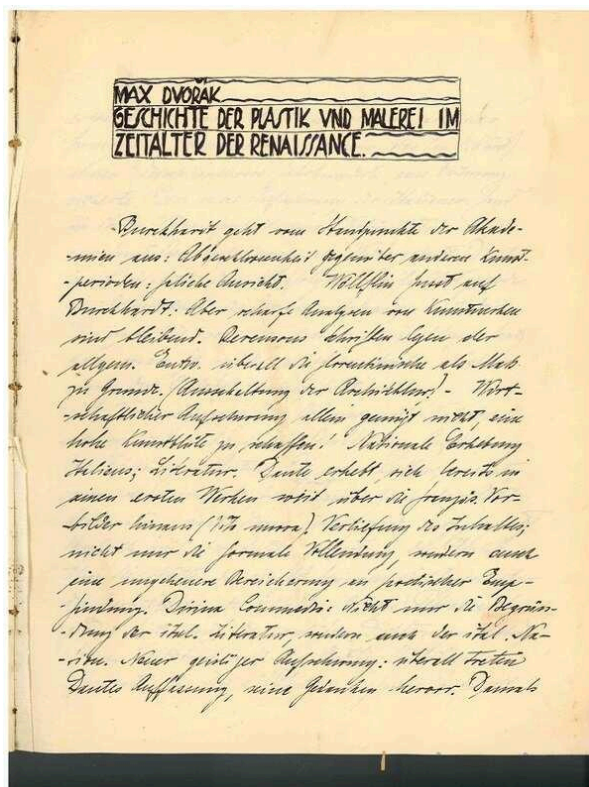 MAX DVOŘÁK
GESCHICHTE DER PLASTIK VND MALEREI IM
ZEITALTER DER RENAISSANCE.
Burckhardt geht vom Standpunkte der Akade-
-mien aus: Abgeschlossenheit gegenüber anderen Kunst-
-perioden: falsche Ansicht. Wölfflin fusst auf
Burckhardt: Aber scharfe Analysen von Kunstwerken
sind bleibend. Berensons Schriften legen der
allgem. Entw. überall die florentinische als Maß
zu Grunde. (Ausschaltung der Architektur) - Wirt-
-schaftlicher Aufschwung allein genügt nicht, eine
hohe Kunstblüte zu schaffen! Nationale Erhebung
Italiens; Literatur. Dante erhebt sich bereits in
seinen ersten Werken weit über die französ. Vor-
-bilder hinaus (Vita nuova). Vertiefung des Inhaltes;
nicht nur die formale Vollendung, sondern auch
eine ungeheuere Bereicherung an poetischer Emp-
-findung. Divina Commedia nicht nur die Begrün-
-dung der ital. Literatur, sondern auch der ital. Na-
-tion. Neuer geistiger Aufschwung: überall treten
Dantes Auffassung, seine Gedanken hervor. Damals